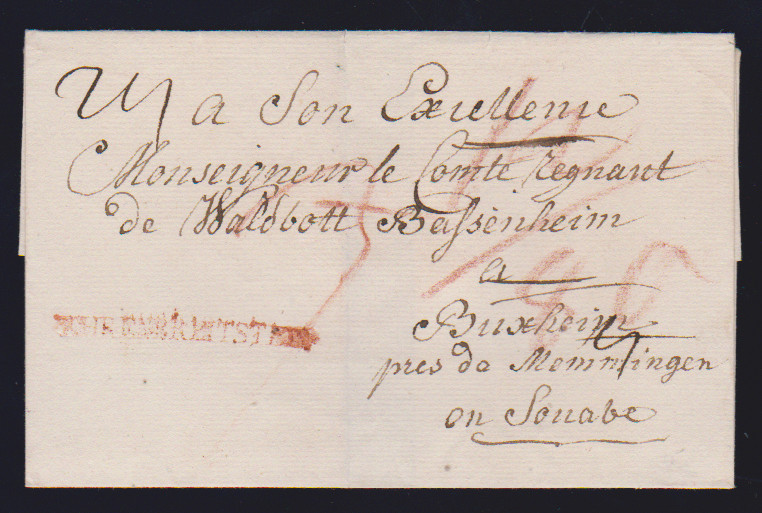 a Son Exellence
Monseigneur le Comte regnant
de Waldbott Bassenheim
a
Buxheim
pres de Memmingen
en Souabe